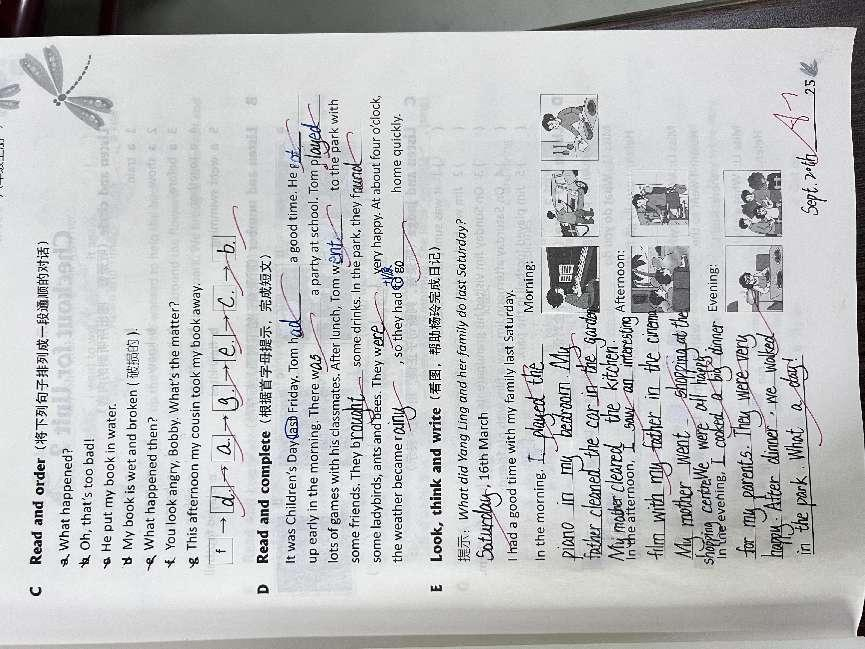 C Read and order（将下列句子排列成一段通顺的对话）
a What happened?
b Oh, that's too bad!
c He put my book in water.
d My book is wet and broken (破损的).
e What happened then?
f You look angry, Bobby. What's the matter?
g This afternoon my cousin took my book away.
f → d. → a. → g. → e. → c. → b.
D Read and complete（根据首字母提示，完成短文）
It was Children's Day last Friday. Tom had a good time. He got
up early in the morning. There was a party at school. Tom played
lots of games with his classmates. After lunch, Tom went to the park with
some friends. They brought some drinks. In the park, they found
some ladybirds, ants and bees. They were very happy. At about four o'clock,
the weather became rainy, so they had to go home quickly.
E Look, think and write（看图，帮助杨玲完成日记）
提示: What did Yang Ling and her family do last Saturday?
Saturday, 16th March
I had a good time with my family last Saturday.
In the morning, I played the
piano in my bedroom. My
father cleaned the car in the garden
My mother cleared the kitchen.
In the afternoon, I saw an interesting
film with my father in the cinema
My mother went shopping at the
shopping centre. We were all happy
In the evening, I cooked a big dinner
for my parents. They were very
happy. After dinner, we walked
in the park. What a day!
Morning:
Afternoon:
Evening:
Sept. 20th
25